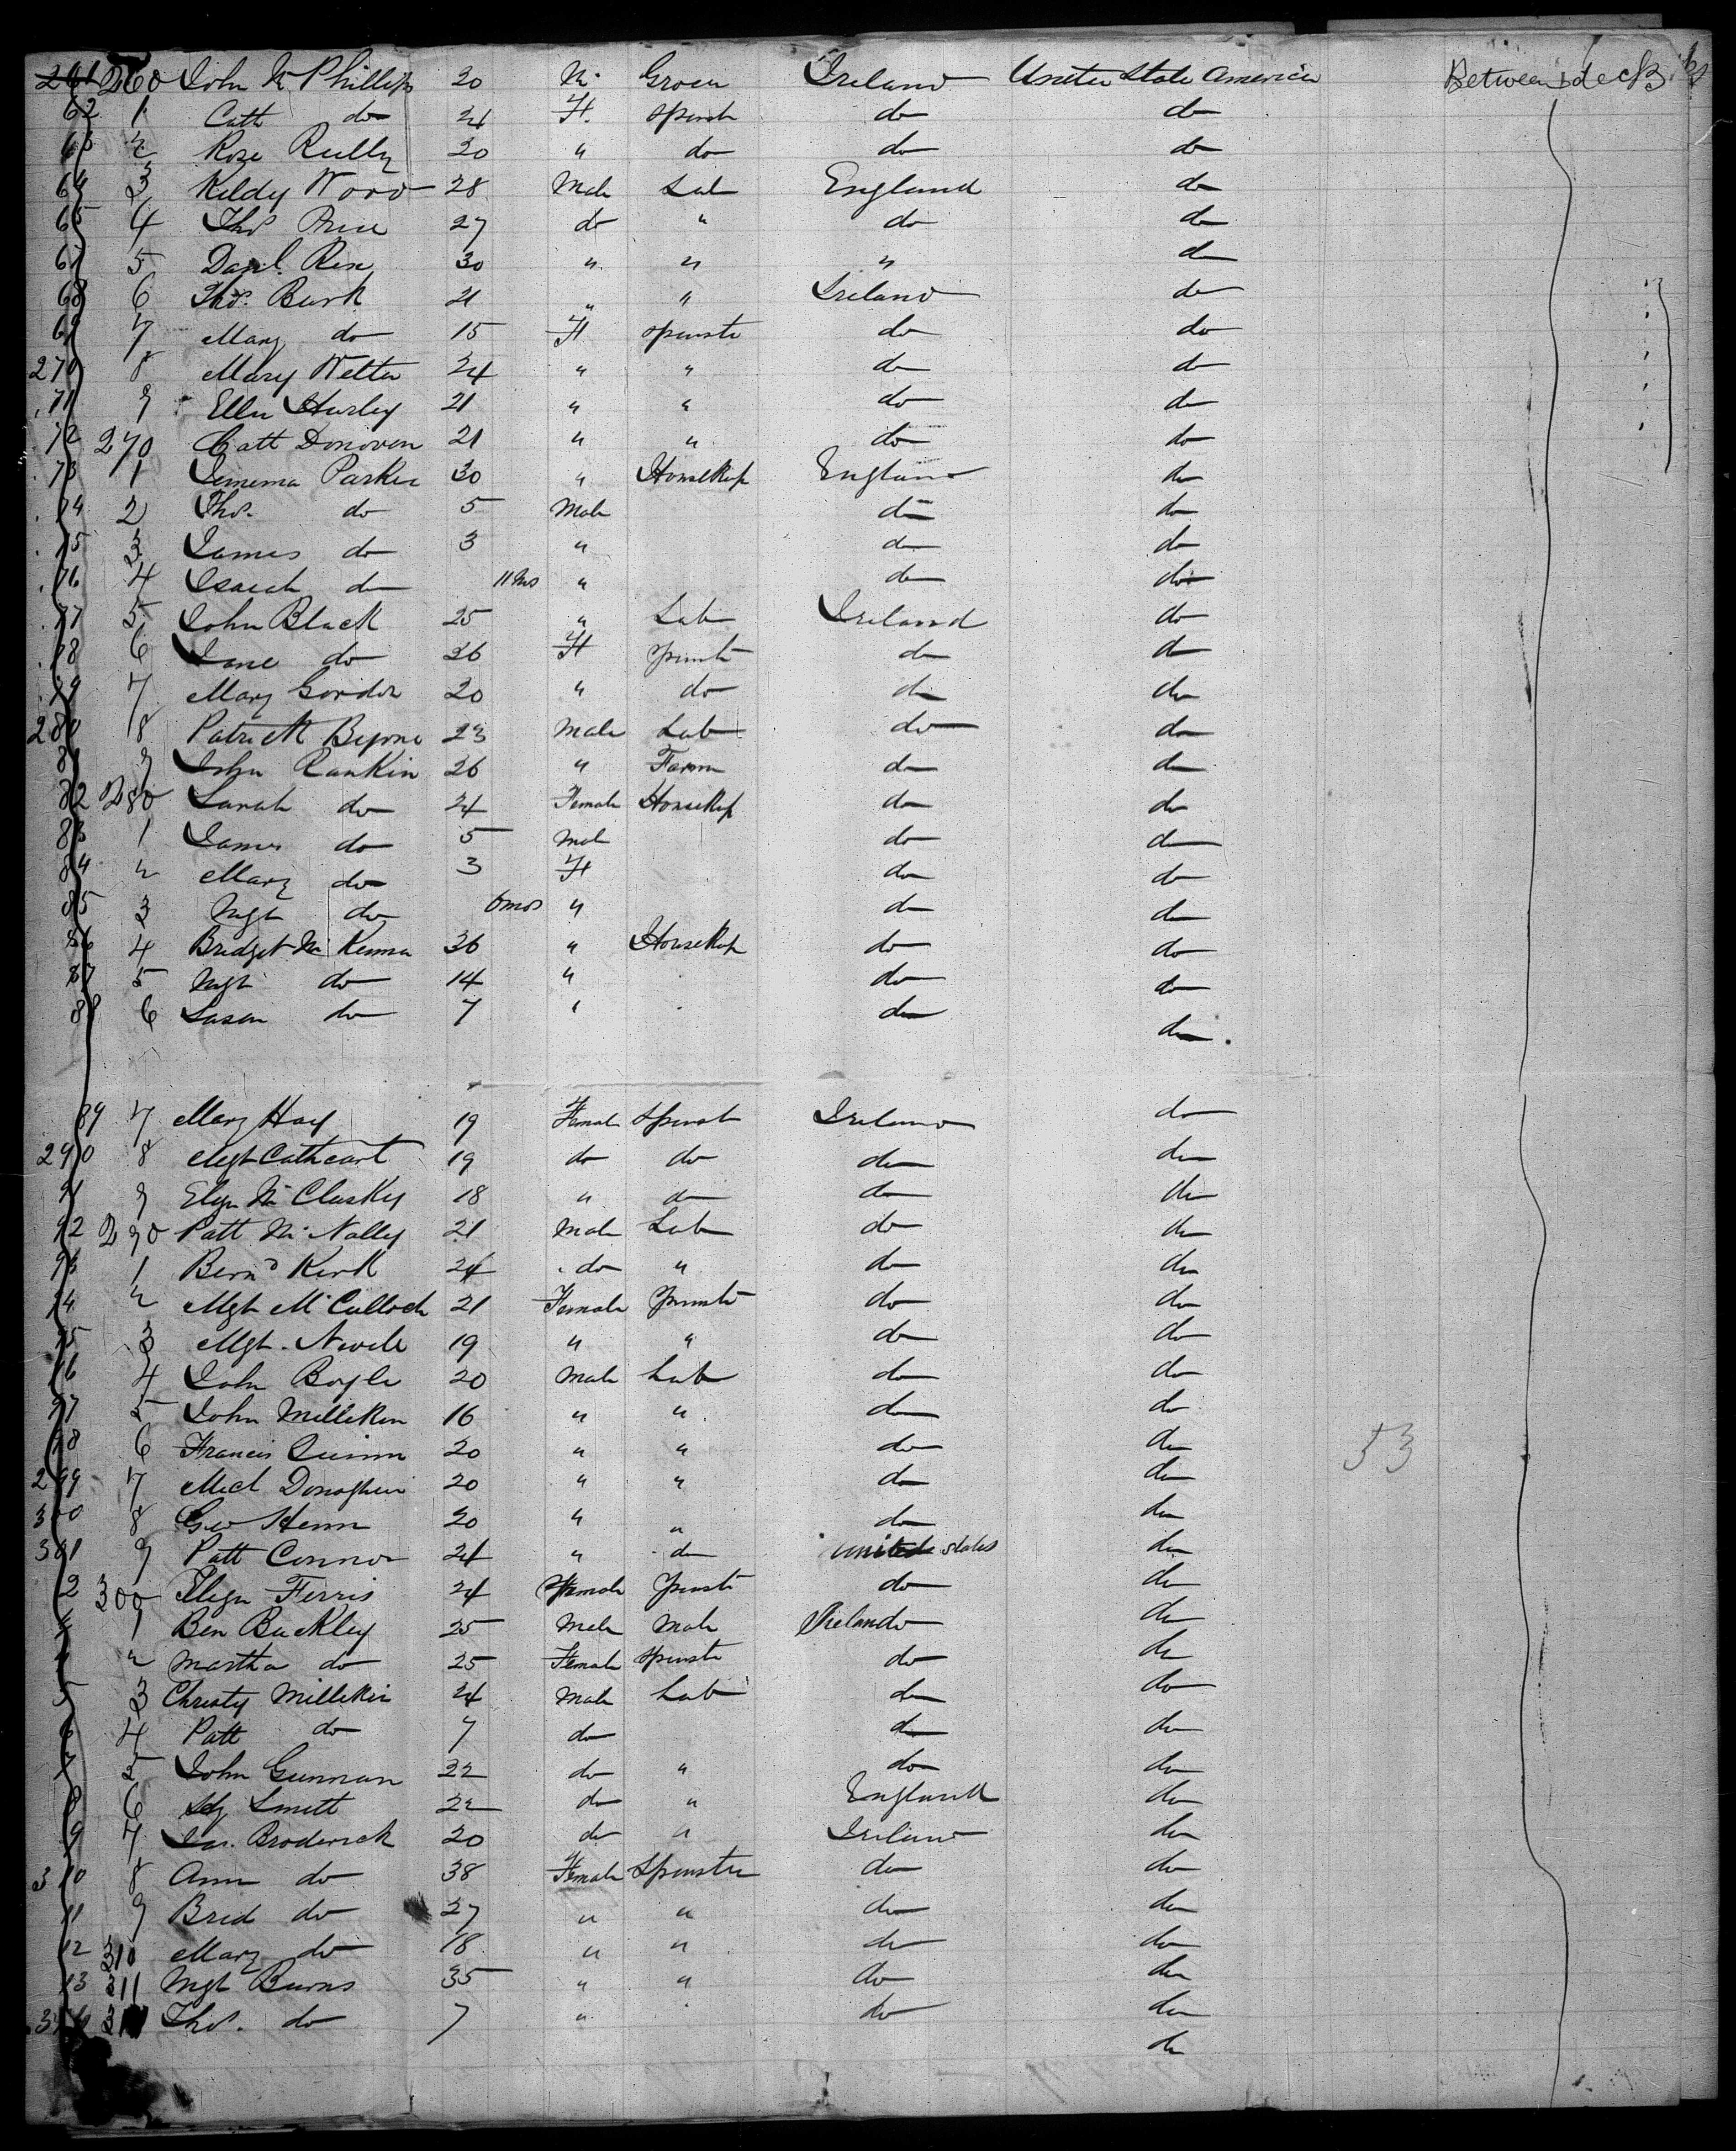 261 260 John Mc Phillips 20 M. Grocer Ireland United State America Between decks
62 1 Cath do 24 F. Spinst do do
63 2 Rose Reilly 20 " do do do
64 3 Wood 28 Male Lab England do
65 4 Thos 27 do " do do
67 5 Danl. 30 " " " do
68 6 Thos. Burk 21 " " Ireland do
69 7 Mary do 15 F Spinste do do
270 8 Mary 24 " " do do
71 9 Ellen Hurley 21 " " do do
72 270 Cath Donovan 21 " " do do
73 1 Jemima Parker 30 " HouseKep England do
74 2 Thos. do 5 Male do do
75 3 James do 3 " do do
76 4 do 11 Mos " do do
77 5 John Black 25 " Lab Ireland do
78 6 Jane do 26 F Spinst do do
79 7 Mary Gordon 20 " do do do
280 8 Patrick 23 Male Lab do do
81 9 John Rankin 26 " Farm do do
82 280 Sarah do 24 Female HouseKep do do
83 1 James do 5 Male do do
84 2 Mary do 3 F do do
85 3 Mgt do 6 mos " do do
86 4 Bridget Mc Kenna 36 " HouseKep do do
87 5 Mgt do 14 " do do
88 6 Susan do 7 " do do
89 7 Mary Hay 19 Female Spinst Ireland do
290 8 Mgt Cathcart 19 do do do do
91 9 Mc Cluskey 18 " do do do
92 290 Patt Mc Nalley 21 Male Lab do do
93 1 Bernd Kirk 24 do " do do
94 2 Mgt McCulloch 21 Female Spinste do do
95 3 Mgt. 19 " " do do
96 4 John Boyle 20 Male Lab do do
97 5 John Milliken 16 " " do do
98 6 Francis Quinn 20 " " do do 53
299 7 Mich 20 " " do do
300 8 Geo 20 " " do do
301 9 Patt Connor 24 " do United states do
2 300 Ferris 24 Female Spinste do do
1 Ben Buckley 25 Male Male Ireland do
2 Martha do 25 Female Spinste do do
5 3 Christy Milliken 24 Male Lab do do
6 4 Patt do 7 do do do
7 5 John Gunnan 22 do " do do
8 6 22 do " England do
9 7 Jas. Broderick 20 do " Ireland do
310 8 Ann do 38 Female Spinster do do
11 9 Brid do 27 " " do do
12 310 Mary do 18 " " do do
13 311 Mgt Burns 35 " " do do
Thos. do 7 " do do
do